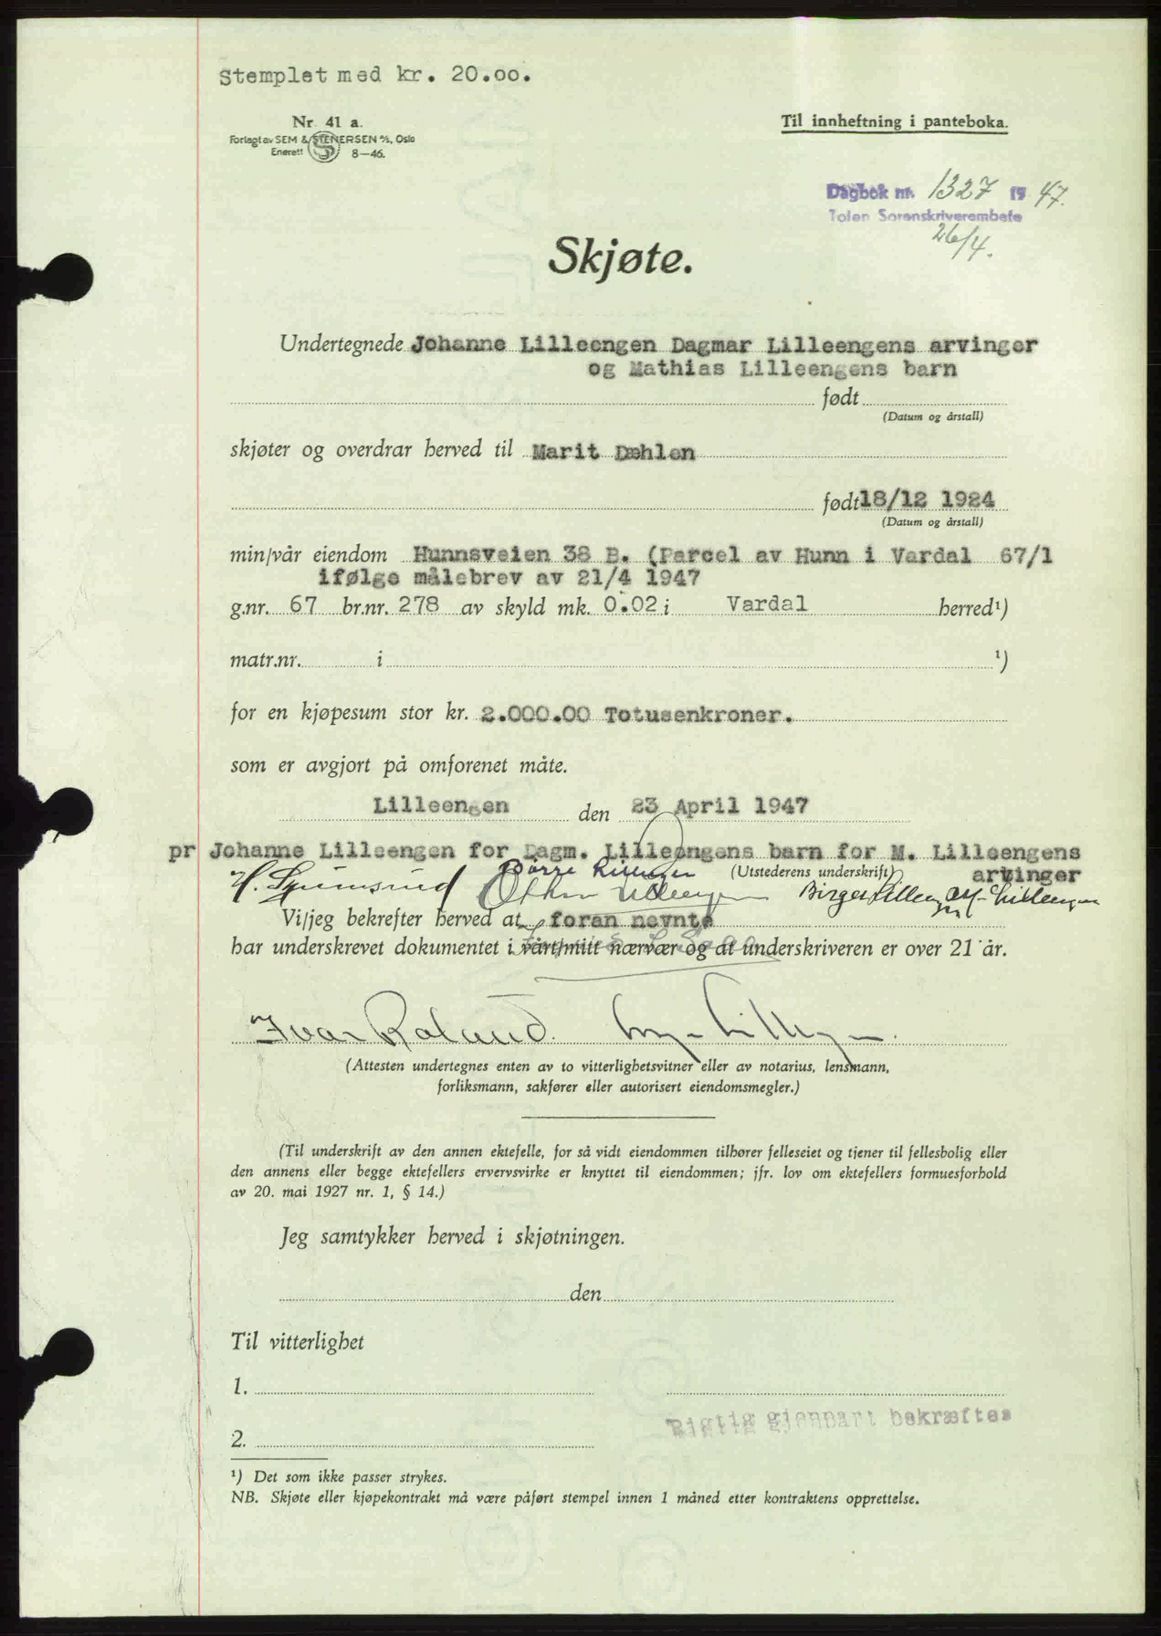 Stemplet med kr. 20.oo.
Nr. 41 a.
Til innheftning i panteboka.
Forlagt av SEM & STENERSEN A/S, Oslo
Enerett 8-46.
Dagbok nr. 1327 1947.
Toten Sorenskriverembete
26/4.
Skjøte.
Undertegnede Johanne Lilleengen Dagmar Lilleengens arvinger
og Mathias Lilleengens barn
født
(Datum og årstall)
skjøter og overdrar herved til Marit Dæhlen
født 18/12 1924
(Datum og årstall)
min/vår eiendom Hunnsveien 38 B. (Parcel av Hunn i Vardal 67/1
ifølge målebrev av 21/4 1947
g.nr. 67 br.nr. 278 av skyld mk. 0.02 i Vardal herred¹)
matr.nr. i ¹)
for en kjøpesum stor kr. 2.000.00 Totusenkroner.
som er avgjort på omforenet måte.
Lilleengen den 23 April 1947
pr Johanne Lilleengen for Dagm. Lilleengens barn for M. Lilleengens
(Utstederens underskrift) arvinger
Birger Lilleengen
Vi/jeg bekrefter herved at foran nevnte
har underskrevet dokumentet i vårt/mitt nærvær og at underskriveren er over 21 år.
Ivar Roland.
(Attesten undertegnes enten av to vitterlighetsvitner eller av notarius, lensmann,
forliksmann, sakfører eller autorisert eiendomsmegler.)
(Til underskrift av den annen ektefelle, for så vidt eiendommen tilhører felleseiet og tjener til fellesbolig eller
den annens eller begge ektefellers ervervsvirke er knyttet til eiendommen; jfr. lov om ektefellers formuesforhold
av 20. mai 1927 nr. 1, § 14.)
Jeg samtykker herved i skjøtningen.
den
Til vitterlighet
1.
Rigtig gjenpart bekræftes
2.
¹) Det som ikke passer strykes.
NB. Skjøte eller kjøpekontrakt må være påført stempel innen 1 måned etter kontraktens opprettelse.